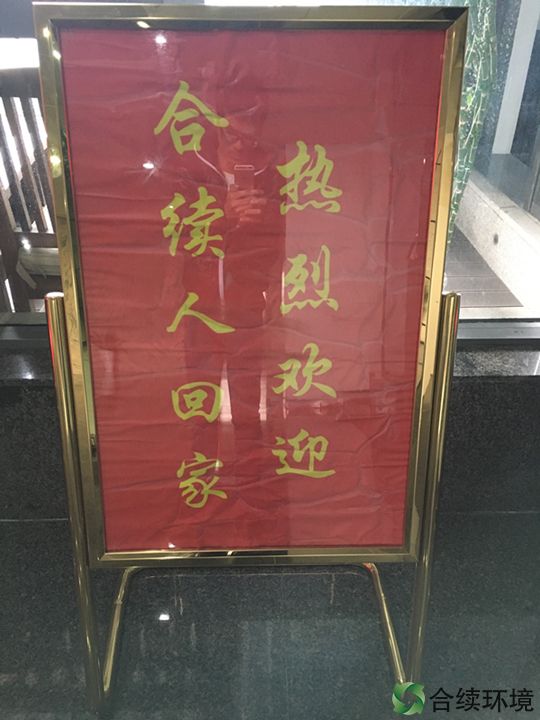 热烈欢迎
合续人回家
合续环境